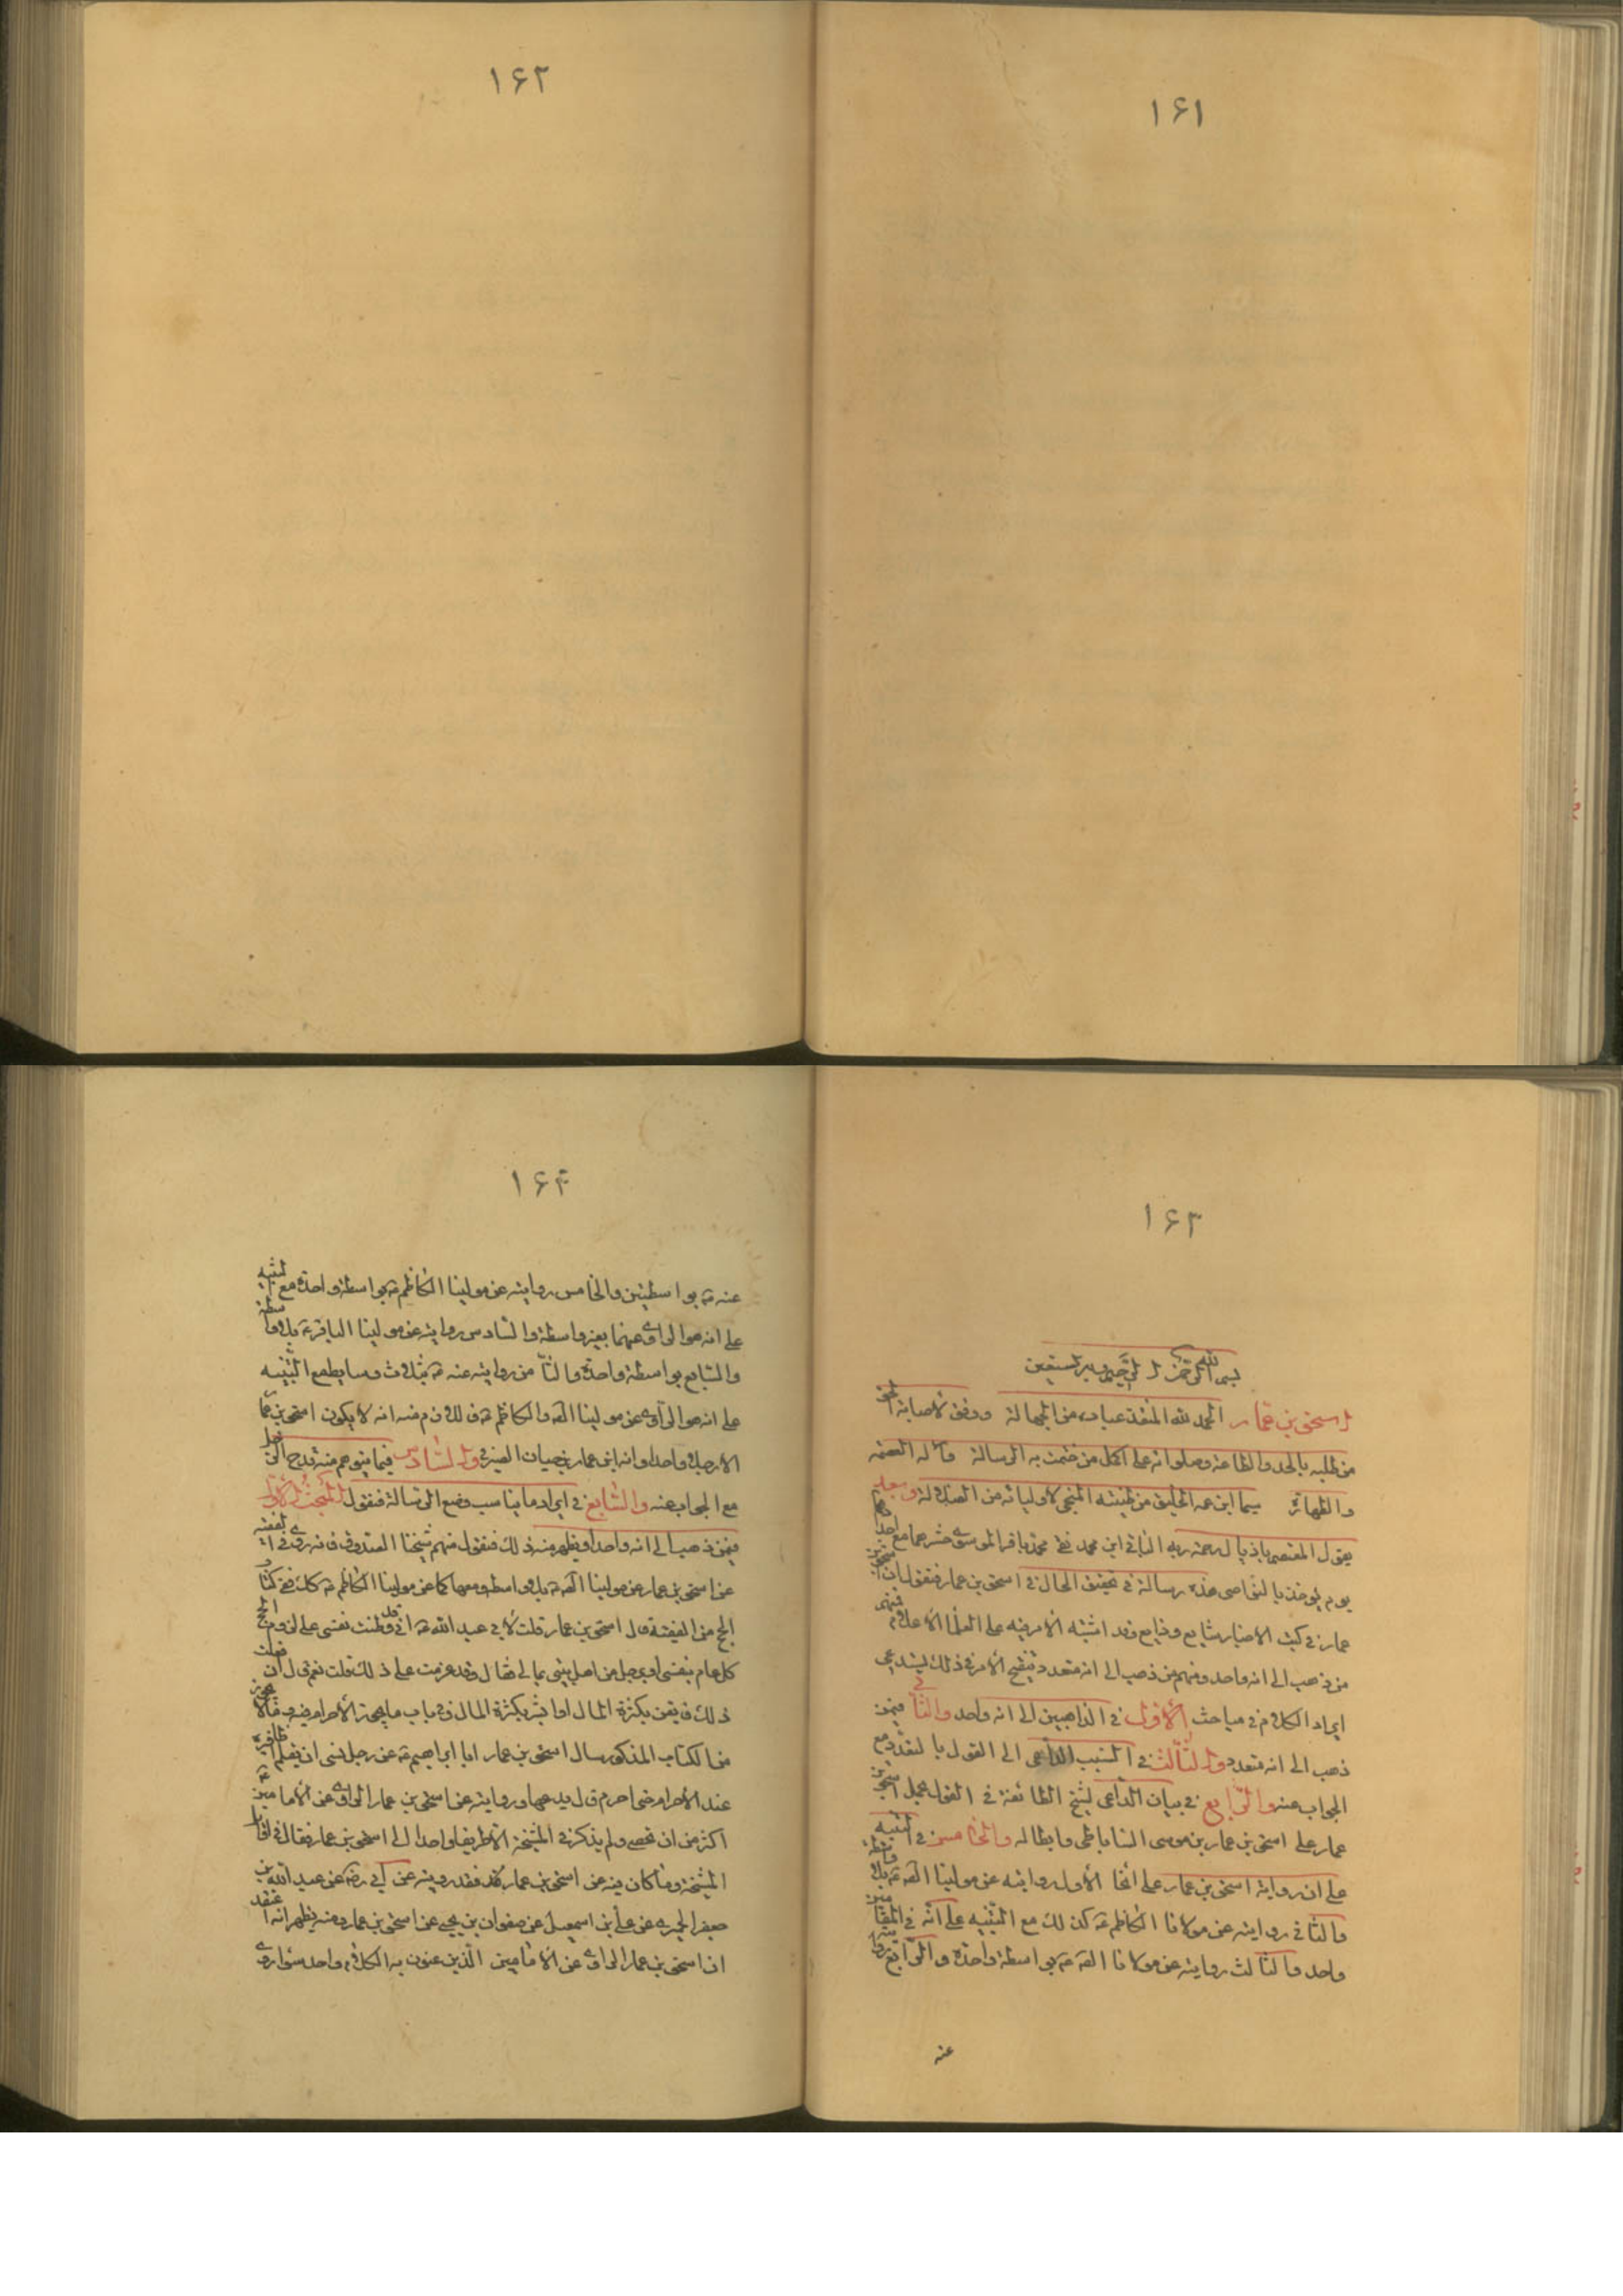 ۱۶۱
۱۶۲
۱۶۳
بسم الله الرحمن الرحيم وبه نستعين
اسحق بن عمار الحمد لله المنقذ عباده من الجهالة ووفق لاصابة الحق
من طلبه بالجد والطاعة وصلواته على اكمل من ختمت به الرسالة وآله العصمة
والطهارة سيما ابن عمه الخليق من طينته المنجي لاوليائه من الضلالة وبعد
يقول المعتصم باذيال رحمة ربه الباقي ابن محمد نقي محمد باقر الموسوي حشرهما مع اجدادهما
يوم يؤخذ بالنواصي هذه رسالة في تحقيق الحال في اسحق بن عمار فنقول ان اسحق بن
عمار في كتب الاخبار شايع وذايع وقد اشتبه الأمر فيه على العلماء الأعلام فمنهم
من ذهب الى انه واحد ومنهم من ذهب الى انه متعدد وتنقيح الأمر في ذلك يستدعي
ايراد الكلام في مباحث الأول في الذاهبين الى انه واحد والثاني فيمن
ذهب الى انه متعدد والثالث في السبب الداعي الى القول بالتعدد مع
الجواب عنه والرابع في بيان الداعي لشيخ الطائفة في القول بحمل اسحق بن
عمار على اسحق بن عمار بن موسى الساباطي وابطاله والخامس في التنبيه
على ان رواية اسحق بن عمار على انحاء الأول روايته عن مولينا الصادق ع بلا واسطة
والثاني روايته عن مولانا الكاظم ع كذلك مع التنبيه على انه في المقامين
واحد والثالث روايته عن مولانا الصادق ع بواسطة واحدة والرابع روايته
عنه
۱۶۴
عنه ع بواسطتين والخامس روايته عن مولينا الكاظم ع بواسطة واحدة مع التنبيه
على انه هو الراوي عنهما بغير واسطة والسادس روايته عن مولينا الباقر ع بلا واسطة
والسابع بواسطة واحدة والثامن روايته عنه ع بثلاث وسايط مع التنبيه
على انه هو الراوي عن مولينا الصادق والكاظم ع فاللازم منه انه لا يكون اسحق بن عمار
الا رجلا واحدا وانه ابن عمار بن حيان الصيرفي والسادس فيما يتوهم منه قدح الرجل
مع الجواب عنه والسابع في ايراد ما يناسب وضع الرسالة فنقول المبحث الأول
فيمن ذهب الى انه واحد او يظهر منه ذلك فنقول منهم شيخنا الصدوق فانه روى في الفقيه
عن اسحق بن عمار عن مولينا الصادق ع بلا واسطة ومعها كما عن مولينا الكاظم ع كذلك ففي كتاب
الحج من الفقيه قال اسحق بن عمار قلت لابي عبد الله ع اني قد وطنت نفسي على لزوم الحج
كل عام بنفسي او برجل من اهل بيتي بمالي فقال وقد عزمت على ذلك قلت نعم قال ان فعلت
ذلك فايقن بكثرة المال او ابشر بكثرة المال وفي باب ما يجوز الأحرام فيه وما لا يجوز
من الكتاب المذكور سال اسحق بن عمار ابا ابراهيم ع عن رجل نسي ان يقلم اظافيره
عند الأحرام حتى احرم قال يدعها وروايته عن اسحق بن عمار الراوي عن الأمامين ع
اكثر من ان تحصى ولم يذكر في المشيخة الا طريقا واحدا الى اسحق بن عمار فقال في اوايل
المشيخة وما كان فيه عن اسحق بن عمار فقد رويته عن ابي رض عن عبد الله بن
جعفر الحميري عن علي بن اسمعيل عن صفوان بن يحيى عن اسحق بن عمار ومنه يظهر انه اعتقد
ان اسحق بن عمار الراوي عن الأمامين الذين عنون به الكلام واحد سواء روى